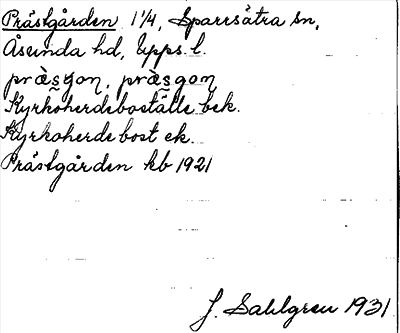 Prästgården 1 1/4, Sparrsätra sn,
Åsunda hd, Upps. l.
Kyrkoherdeboställe bek.
Kyrkoherdebost ek.
Prästgården kb 1921
J. Sahlgren 1931